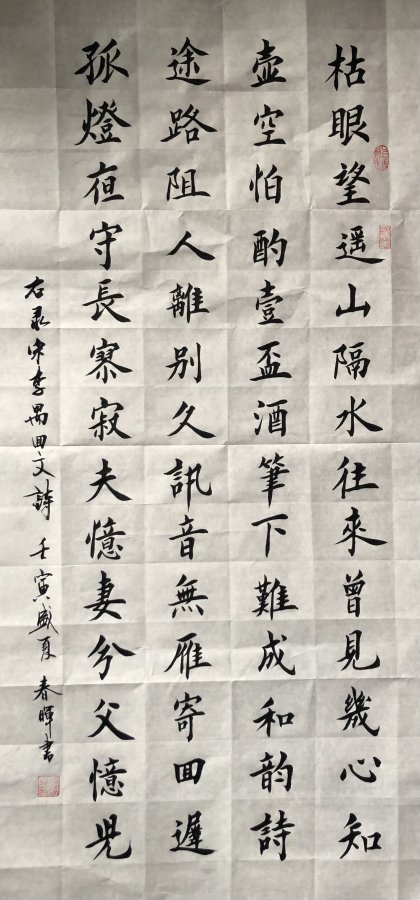 枯眼望遥山隔水往來曾見幾心知
壺空怕酌壹盃酒筆下難成和韵詩
途路阻人離别久訊音無雁寄回遲
孤燈夜守長寥寂夫憶妻兮父憶兒
右录宋李禺回文詩 壬寅盛夏 春暉書